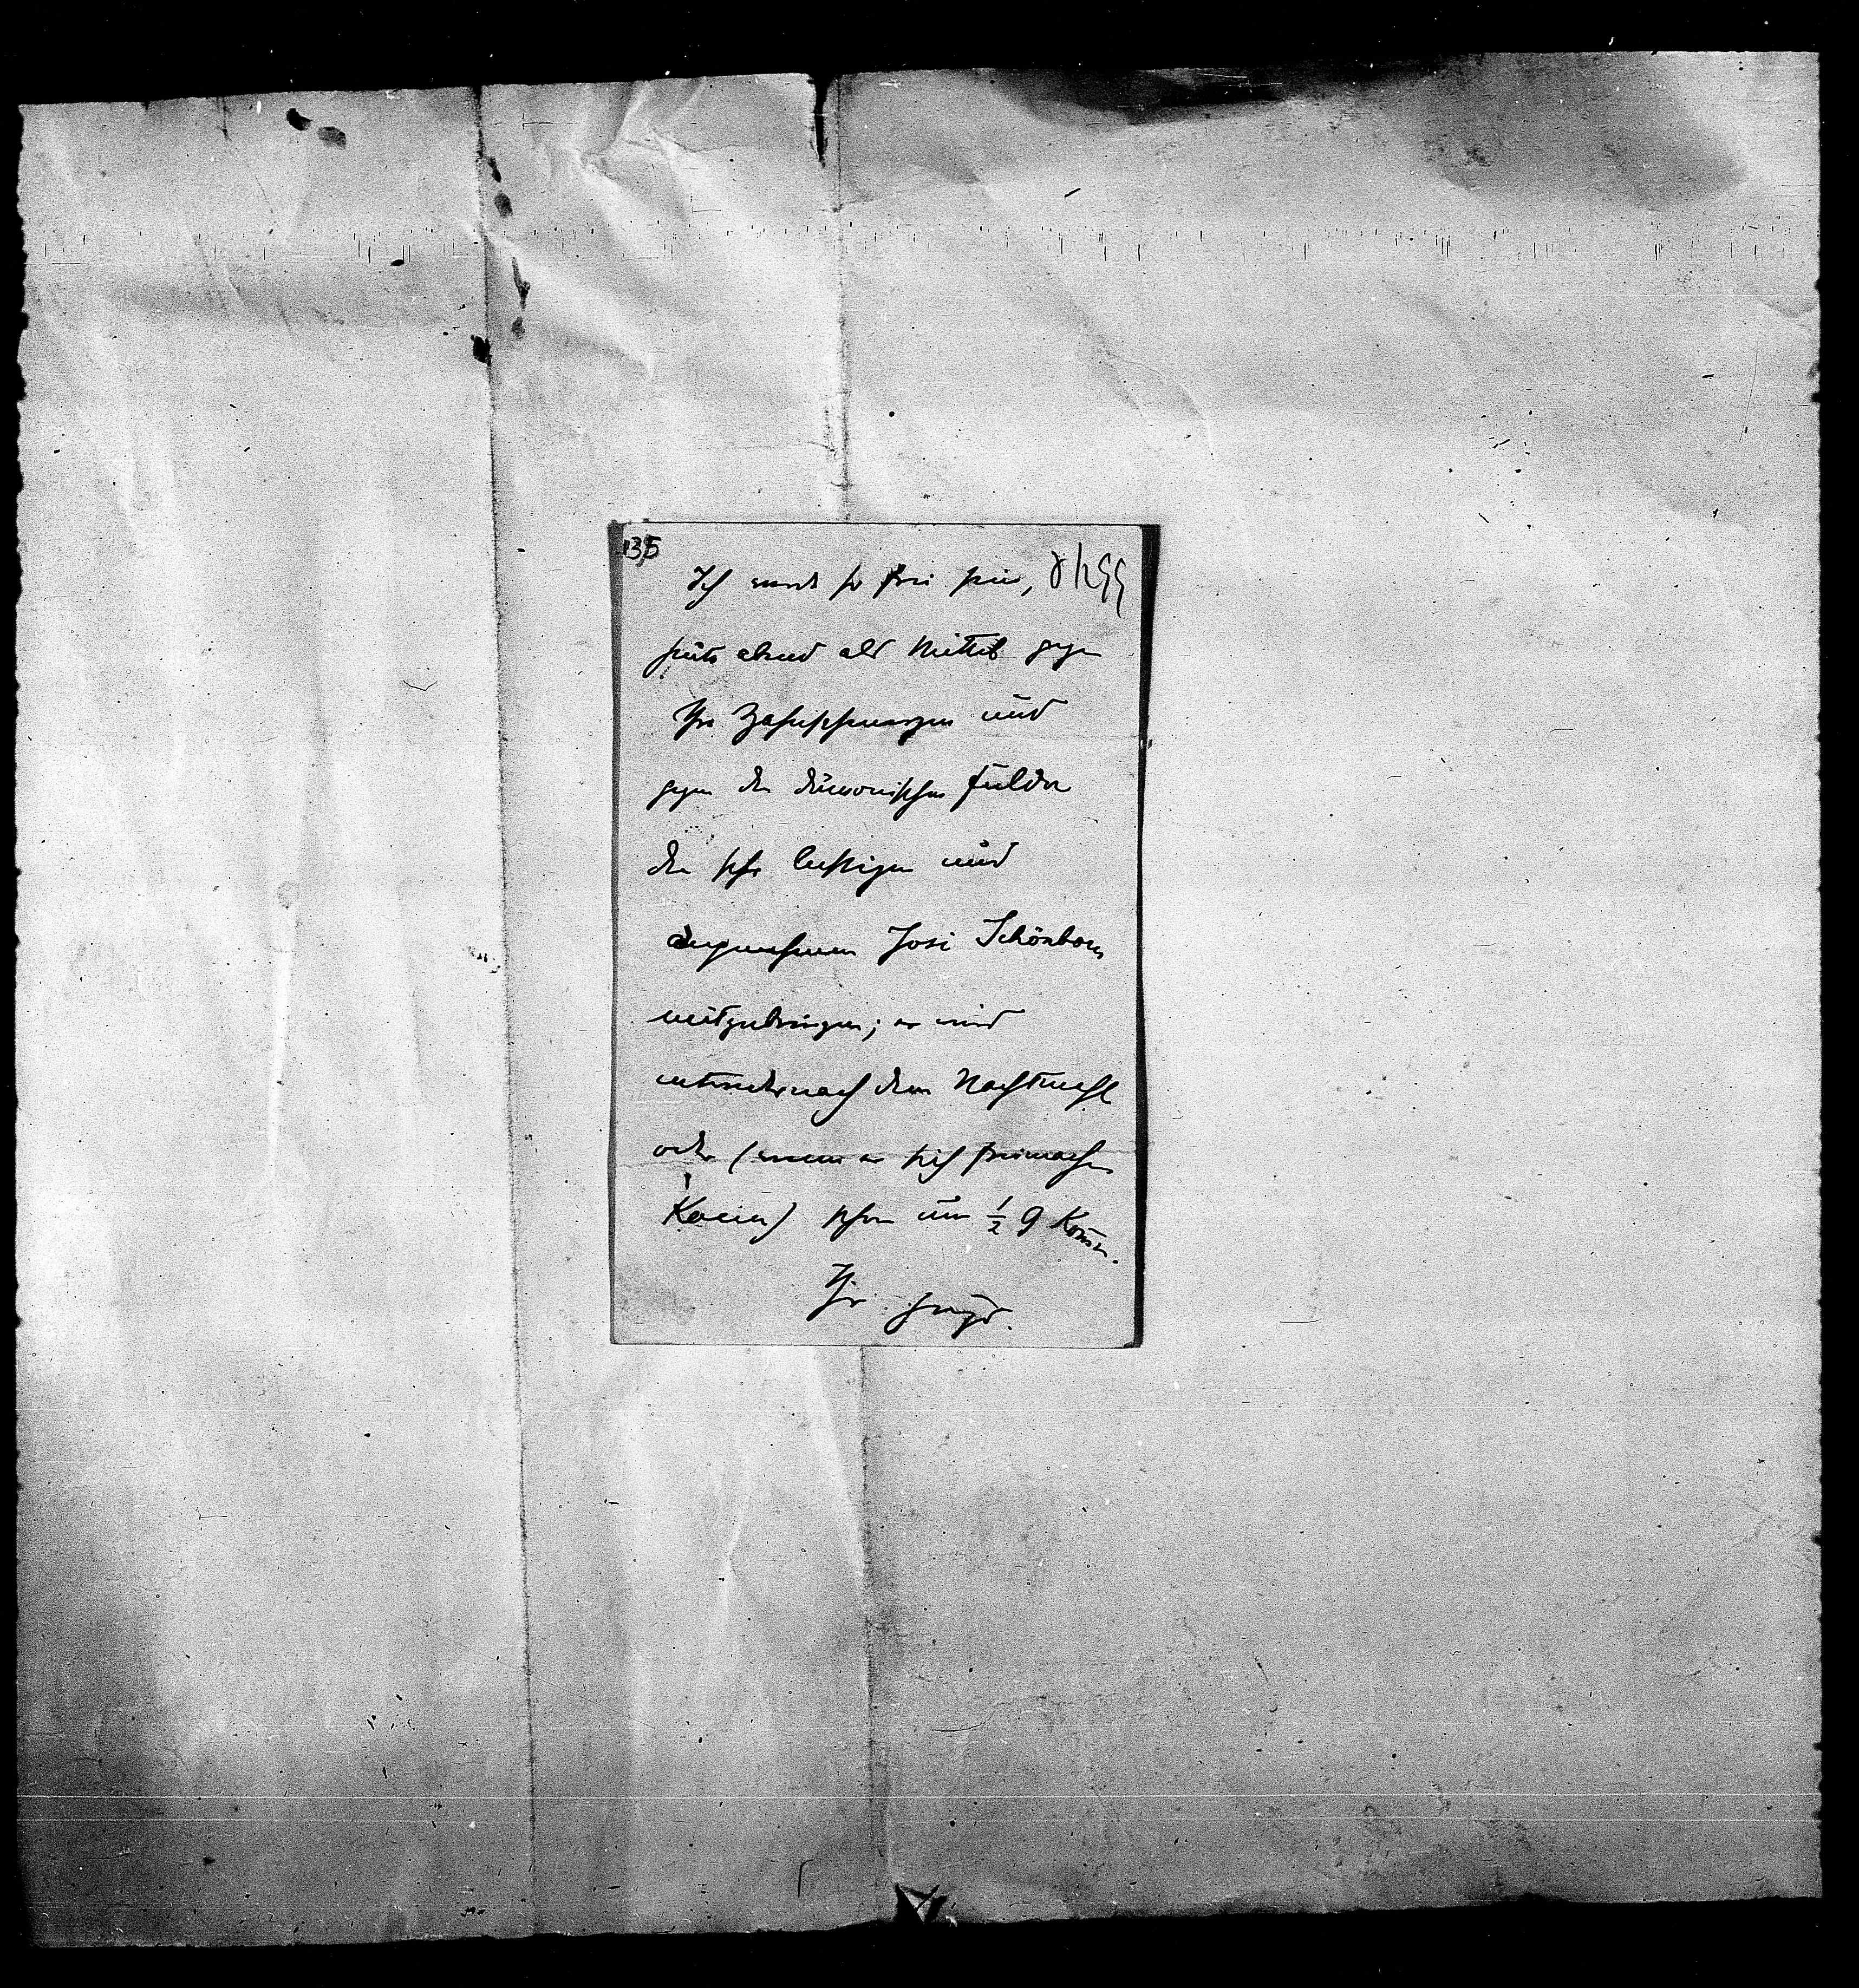 135
Ich werde so frei sein, 8/2 99
heute abend als Mittel gegen
Ihre Zahnschmerzen und
gegen den dämonischen Fulda
den sehr lustigen und
angenehmen Josi Schönborn
mitzubringen; er wird
entweder nach dem Nachtmahl
oder (wenn er sich freimachen
kann) schon um ½ 9 kommen.
Ihr Hugo.